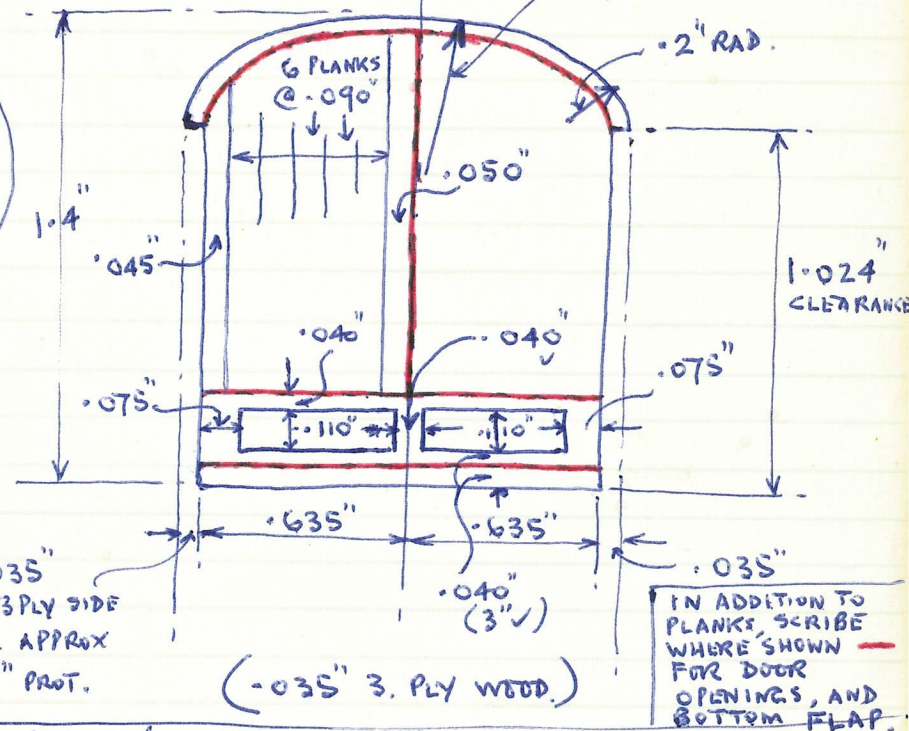 .2" RAD.
6 PLANKS
@ .090"
.050"
1.4"
.045"
1.024"
CLEARANCE
.040"
.040"
.075"
.075"
.110"
.110"
.635"
.635"
035"
3PLY SIDE
APPROX
" PROT.
.040"
(3"√)
.035"
(.035" 3. PLY WOOD.)
IN ADDITION TO
PLANKS, SCRIBE
WHERE SHOWN —
FOR DOOR
OPENINGS, AND
BOTTOM FLAP.